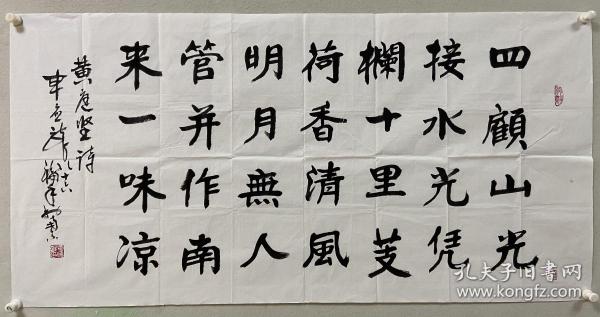 四顧山光
接水光凭
欄十里芰
荷香清風
明月無人
管并作南
来一味凉
黄庭坚诗
孔夫子旧书网
www.kongfz.com